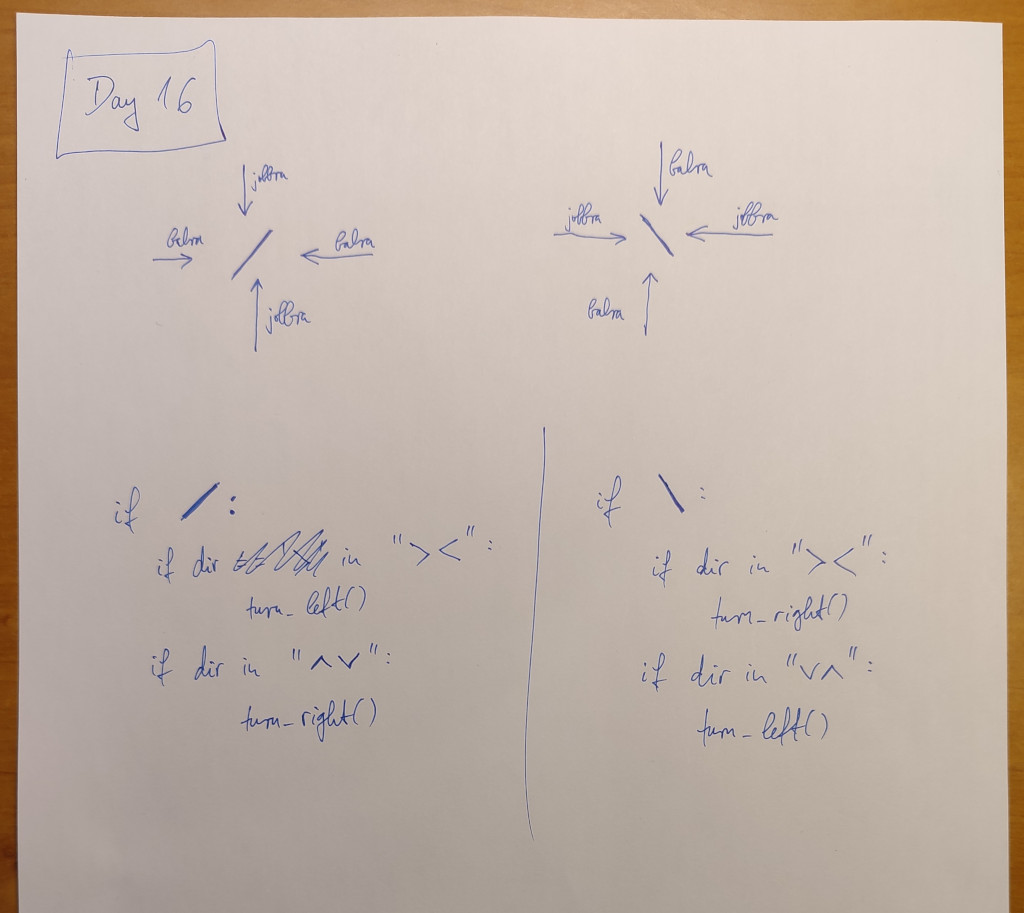 Day 16
jobbra
balra
balra
jobbra
balra
jobbra
jobbra
balra
if / :
if dir in "><":
turn_left()
if dir in "^v":
turn_right()
if \ :
if dir in "><":
turn_right()
if dir in "v^":
turn_left()